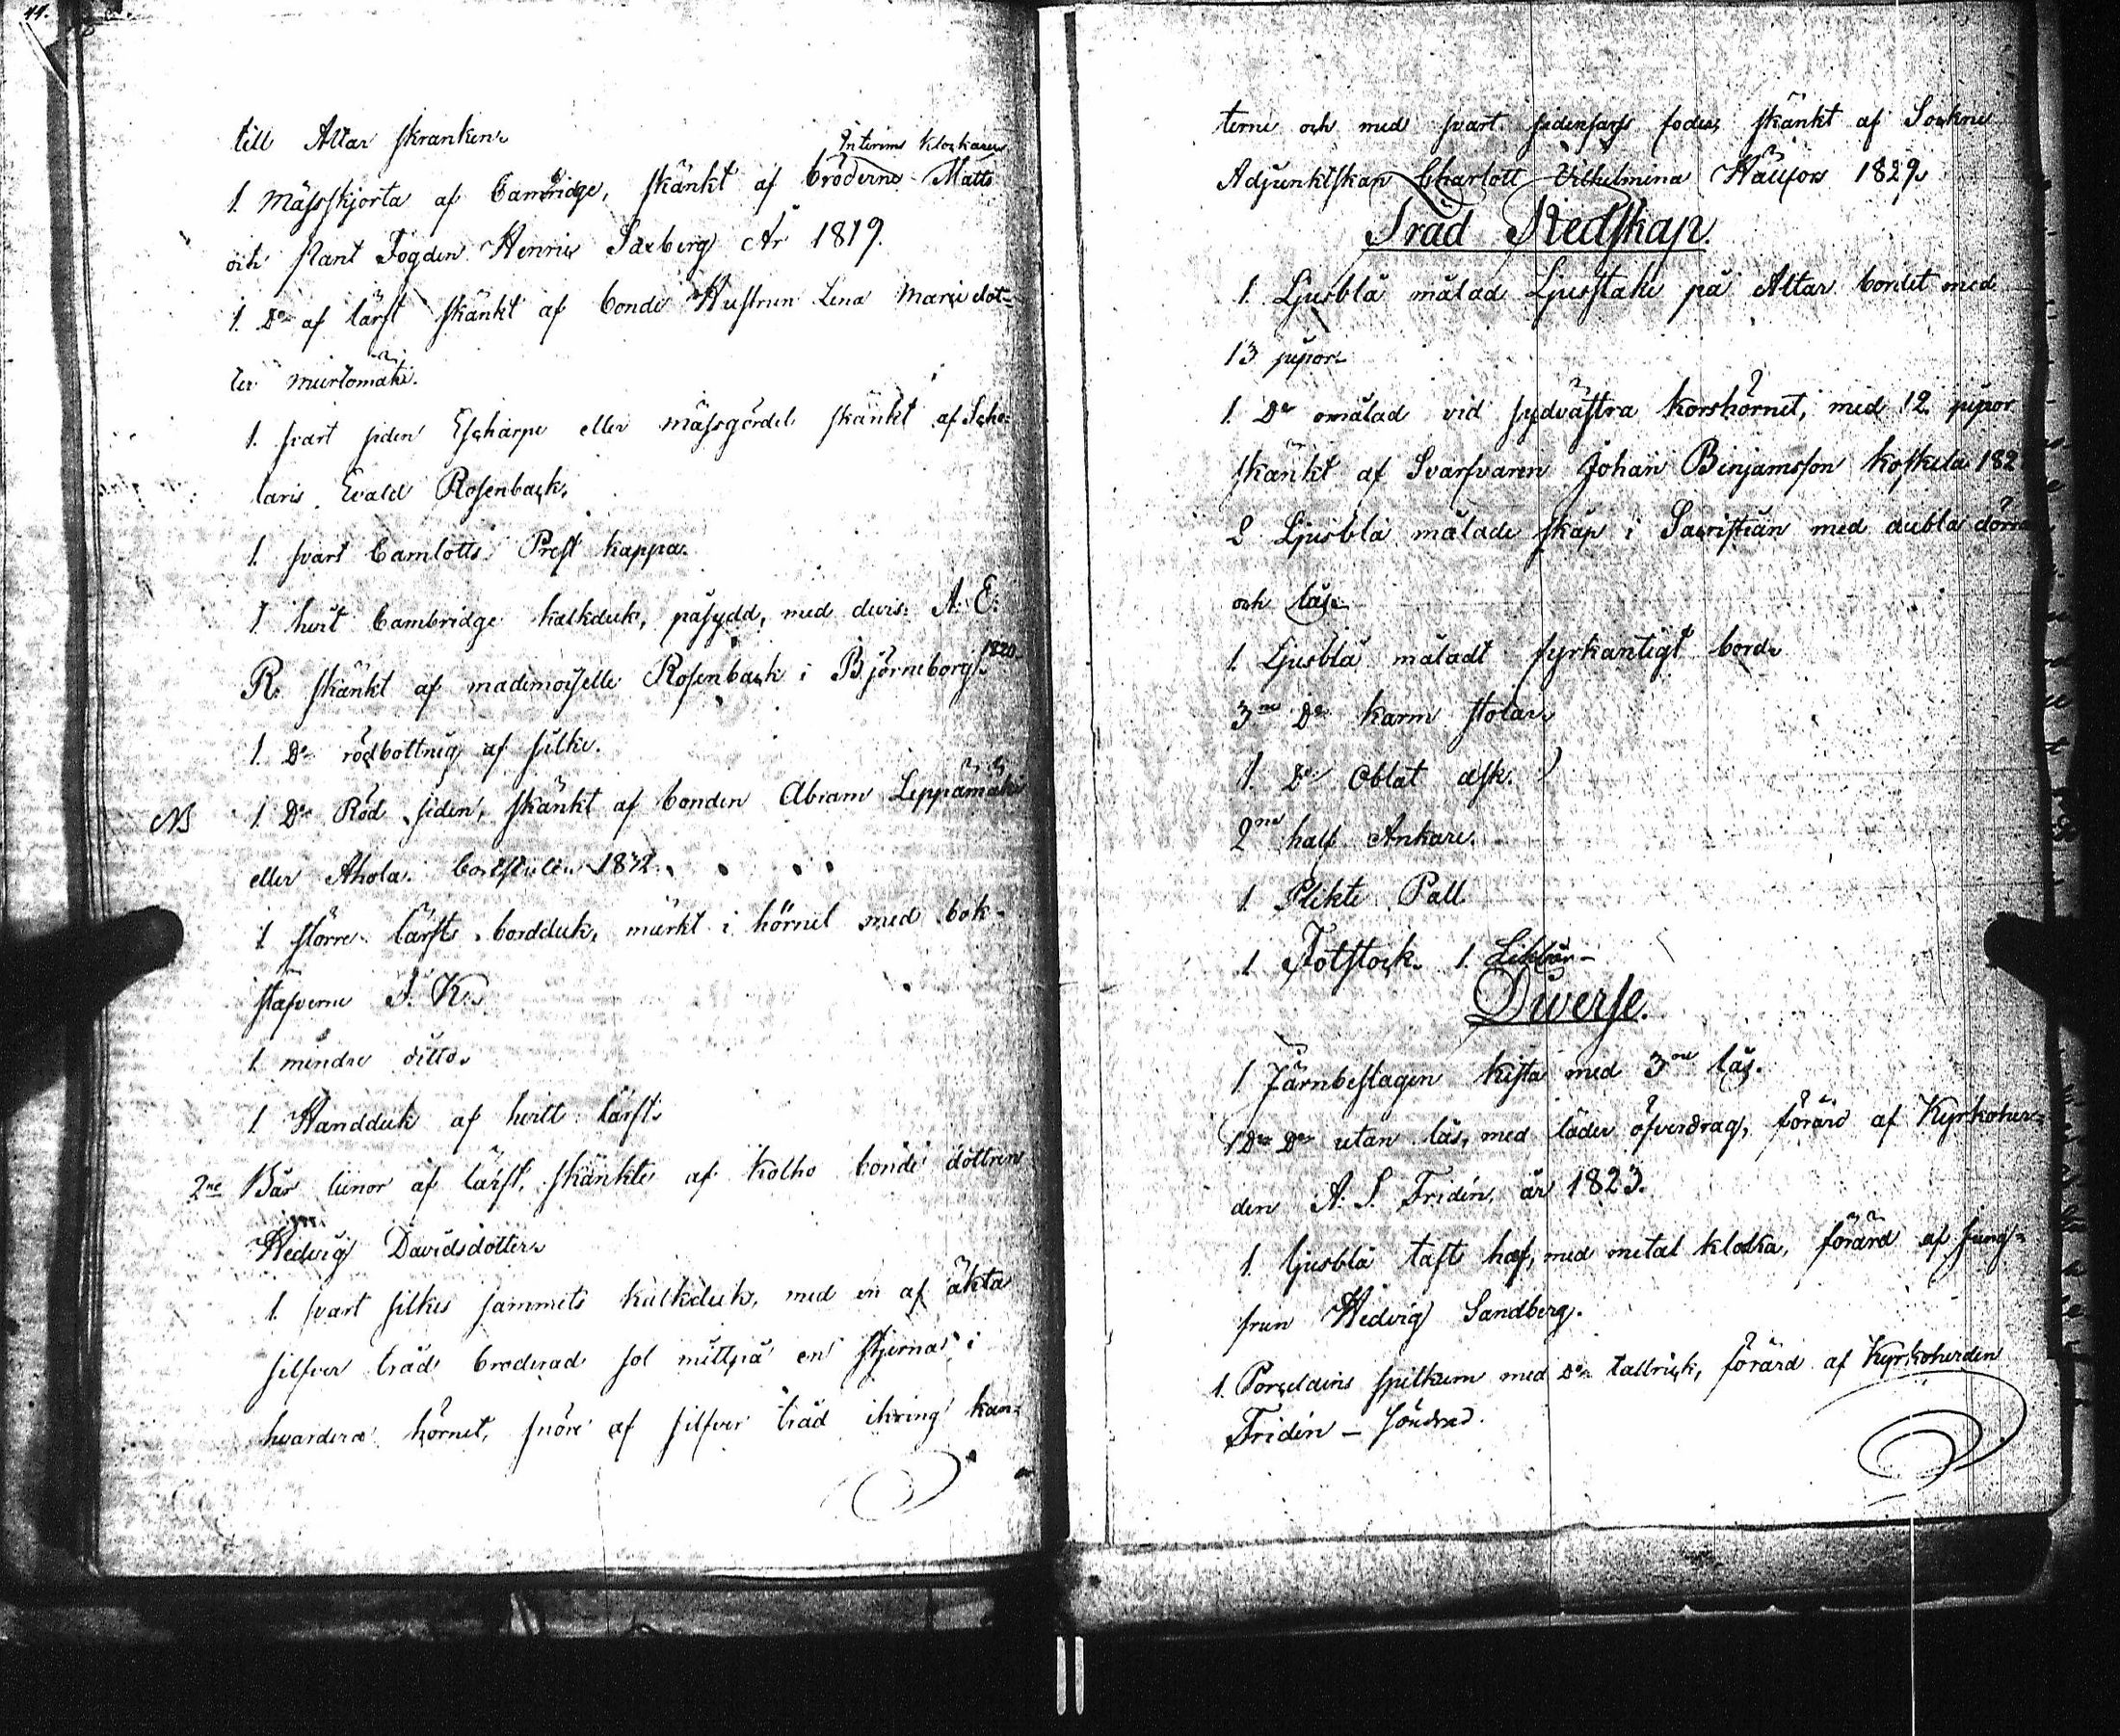 44.
till Altar skranken.
Interims Klockaren
1. Mässskjorta af Cambridge, skänkt af bröderne Matts
och Plant Fogden Henric Saxberg År 1819.
1. Do af lärft skänkt af bonde Hustrun Lena Mariædot-
ter Murtomäki.
1. svart siden Escharpe eller mässgördel skänkt af Scho-
laris Evald Rosenback.
1. svart Camlotts Prest kappa.
1. hvit Cambridge kalkduk, påsydd, med devis: A. E.
R. skänkt af mademoiselle Rosenback i Björneborg. 1820.
1. Do rödbottnig af silke.
NB 1. Do Röd siden, skänkt af bonden Abram Leppämäki
eller Ahola. bortstulen 1872.
1 större lärfts bordduk, märkt i hörnet med bok-
stäfverne J. K.
1 mindre ditto.
1 Handduk af hvitt lärft.
2ne Bår linor af lärft, skänkte af Kolho bonde dottren
Hedvig Davidsdotter.
1. svart silkes sammets kalkduk, med en af äkta
silfver tråd broderad sol mittpå en stjerna i
hvardera hörnet, snöre af silfver tråd ikring kan-
terne och med svart sidensars foder, skänkt af Sockne
Adjunktskan Charlott Vilhelmina 1829.
Träd Redskap.
1. Ljusblå målad Ljusstake på Altar bordet med
13 pipor.
1. Do omålad vid sydvästra korshörnet, med 12 pipor
skänkt af Svarfvaren Johan Benjamsson Koskela 182
2 Ljusblå målade skåp i Sacristian med dubla dörrar
och lås.
1. Ljusblå måladt fyrkantigt bord.
3ne Do karm stolar.
1. Do Oblat ask.
2ne half Ankare.
1. Plikte Pall.
1 Fotstock. 1. Likbår-
Diverse.
1 Järnbeslagen kista med 3ne lås.
1 Do Do utan lås, med läder öfverdrag, förärd af Kyrkoher-
den A. S. Fridén, år 1823.
1. ljusblå taft håf, med metal klocka, förärd af Jung-
frun Hedvig Sandberg.
1. Porcelains spilkum med Do tallrick, förärd af Kyrkoherden
Fridén - söndrad.